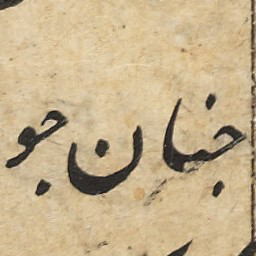 جنان جو